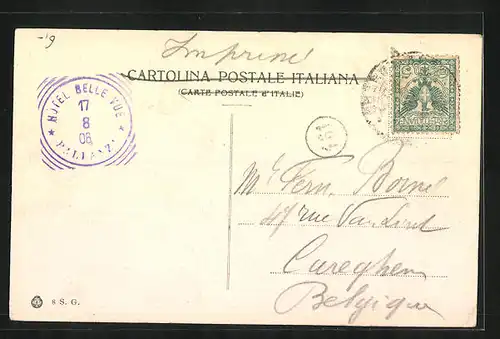 -19
Imprimé
CARTOLINA POSTALE ITALIANA
(CARTE POSTALE d'ITALIE)
HOTEL BELLE VUE
17
8
06
PALLANZA
Mr Fern. Borné
47 rue Van Lint
Cureghem
Belgique
8 S. G.